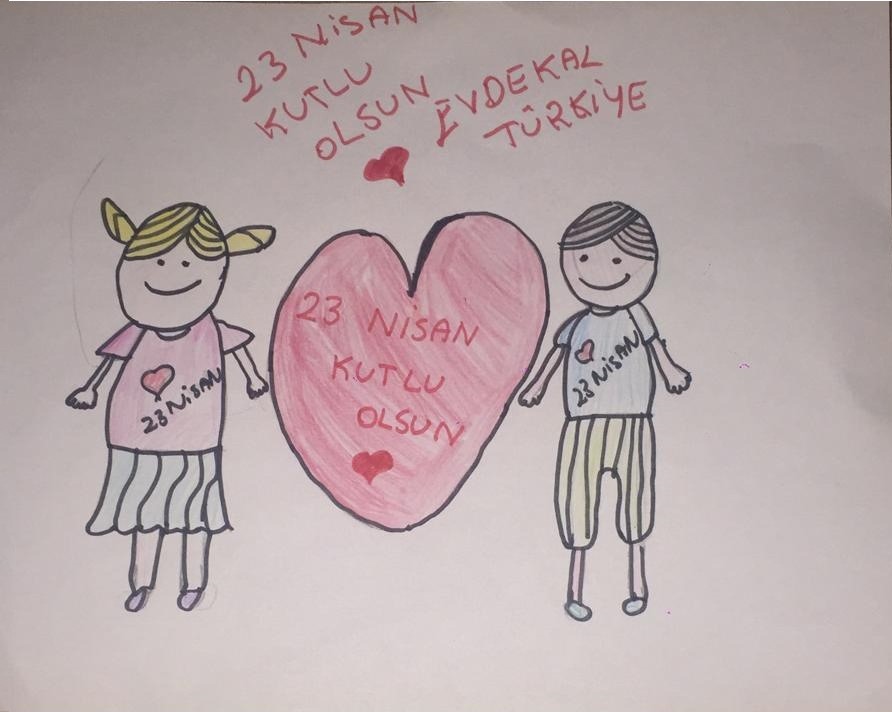 23 NİSAN
KUTLU
OLSUN
EVDEKAL
TÜRKİYE
23 NİSAN
KUTLU
OLSUN
23 NİSAN
23 NİSAN